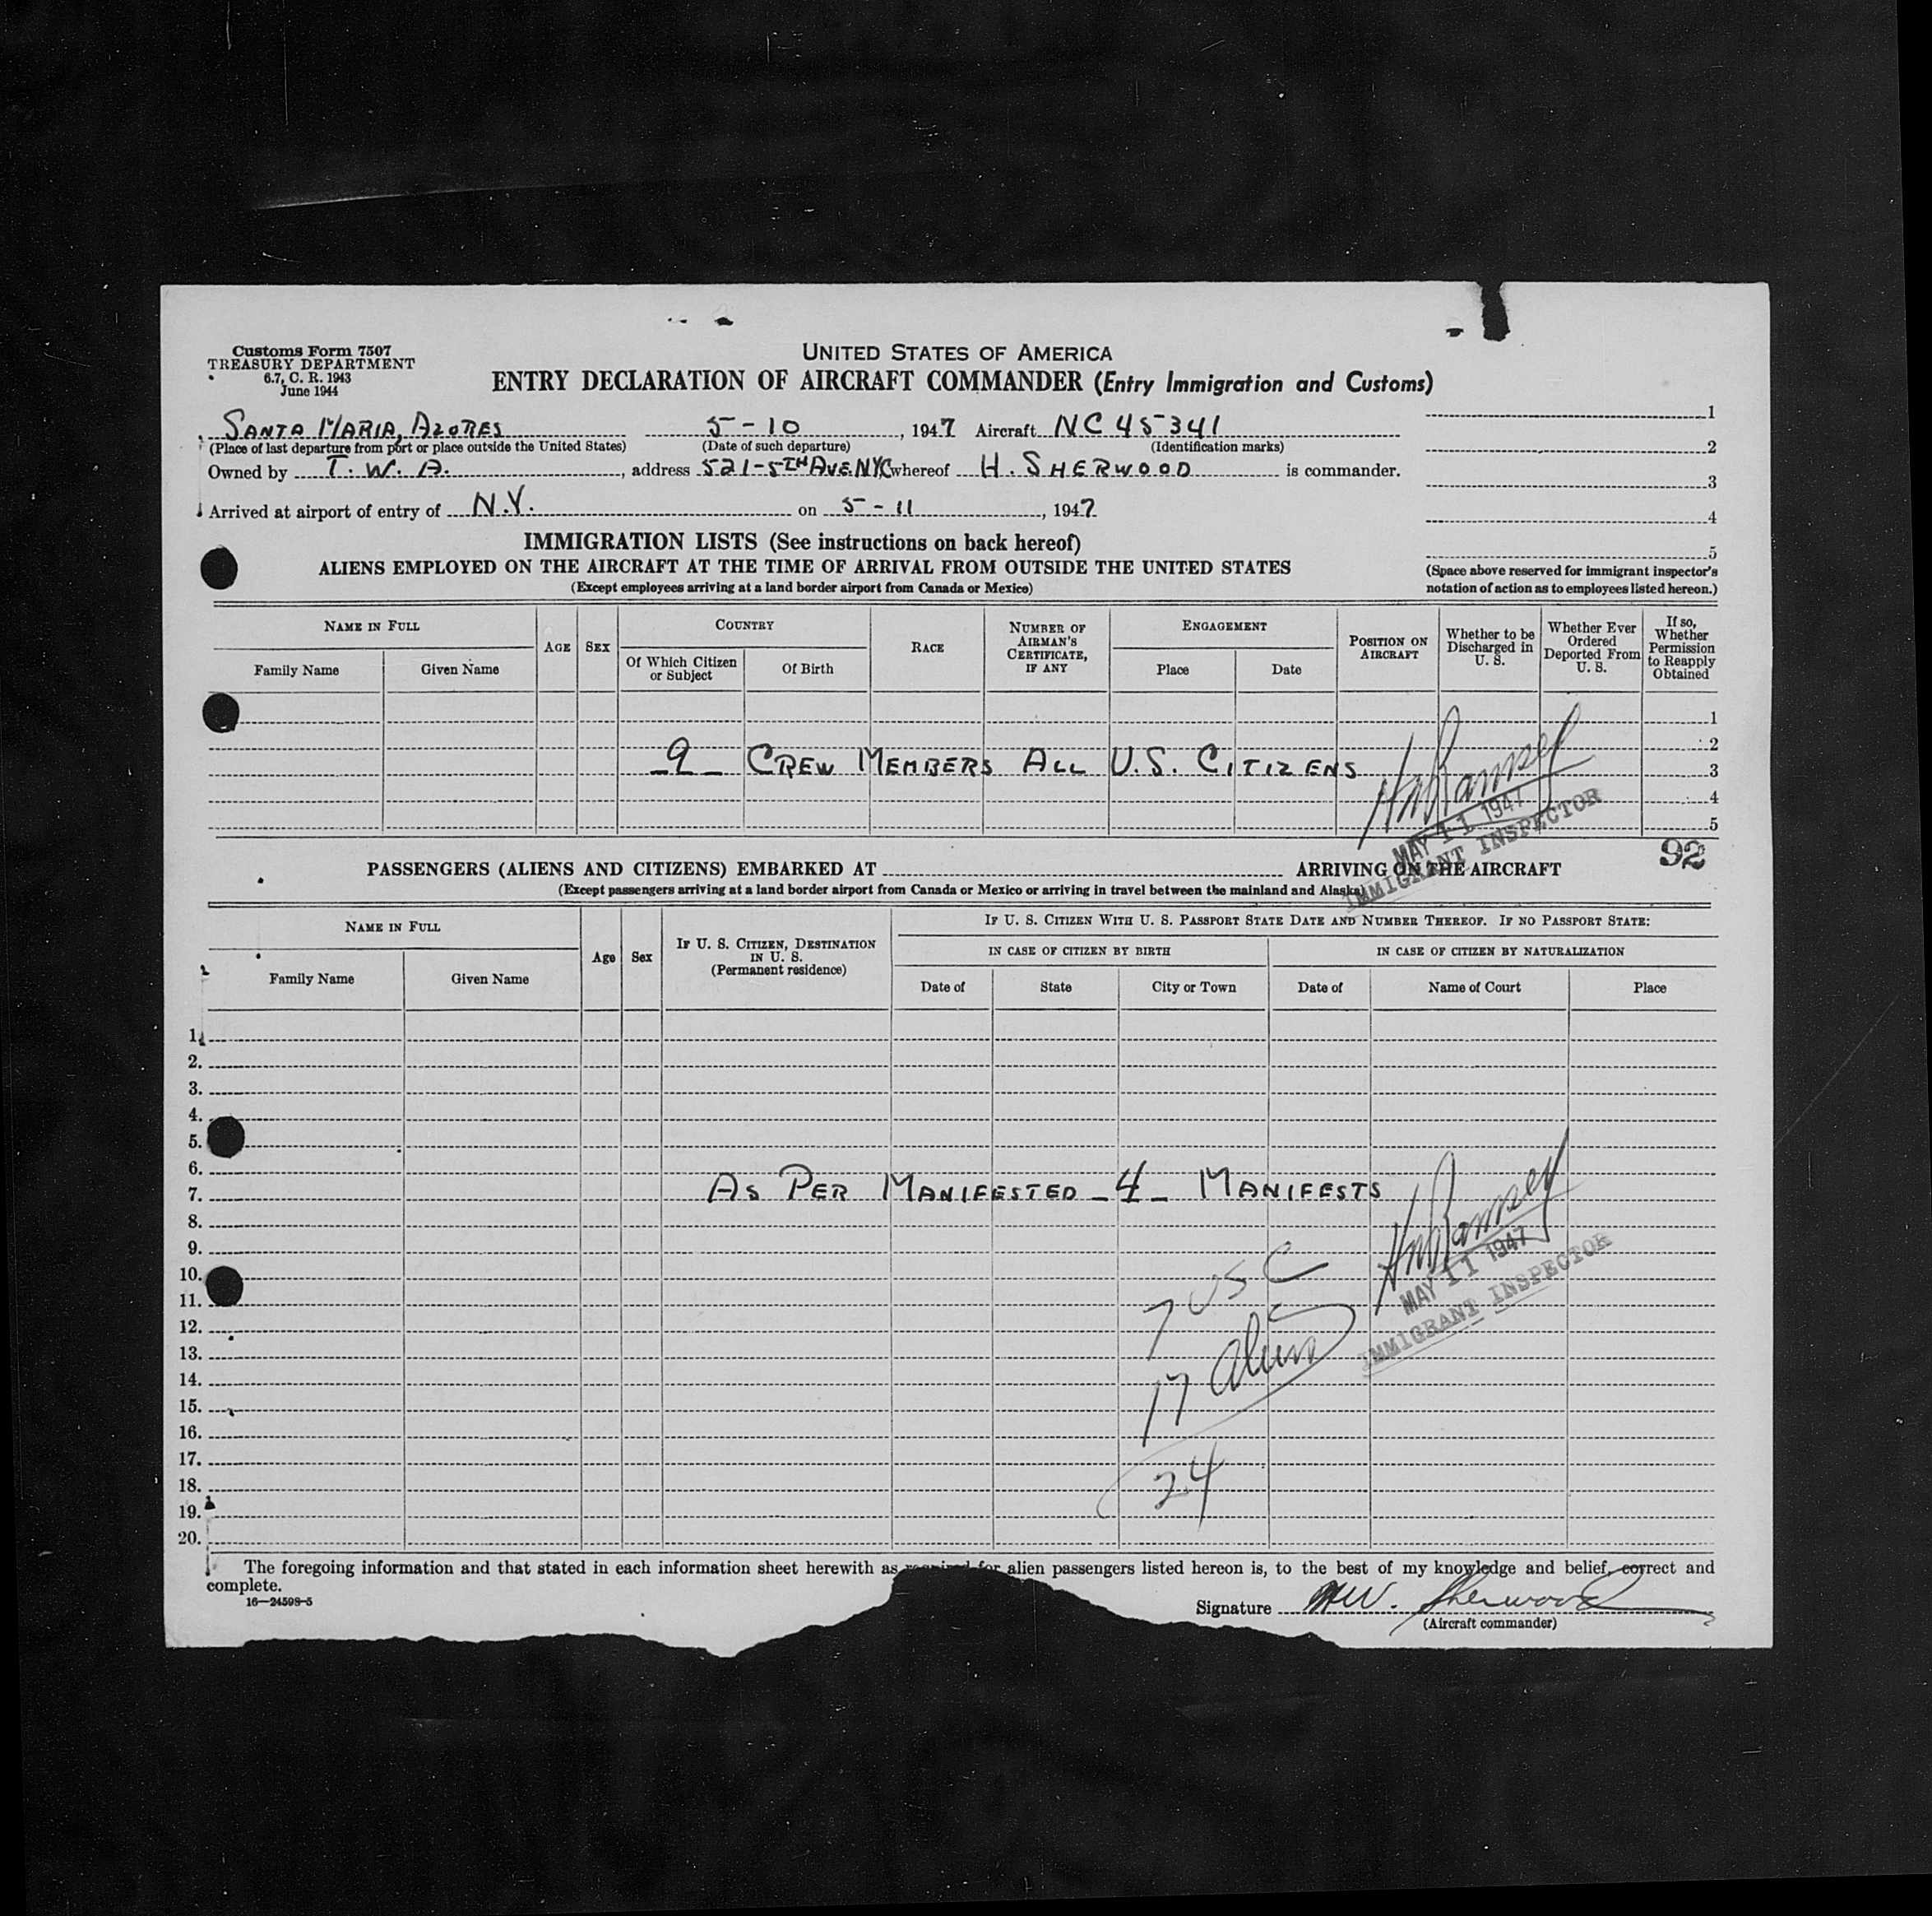 Customs Form 7507
TREASURY DEPARTMENT
6.7, C. R. 1943
June 1944
UNITED STATES OF AMERICA
ENTRY DECLARATION OF AIRCRAFT COMMANDER (Entry Immigration and Customs)
SANTA MARIA, AZORES 5-10, 1947 Aircraft NC 45341
(Place of last departure from port or place outside the United States) (Date of such departure) (Identification marks)
Owned by T. W. A., address 521-5TH AVE. NYC whereof H. SHERWOOD is commander.
Arrived at airport of entry of N.Y. on 5-11, 1947
1
2
3
4
5
(Space above reserved for immigrant inspector's
notation of action as to employees listed hereon.)
IMMIGRATION LISTS (See instructions on back hereof)
ALIENS EMPLOYED ON THE AIRCRAFT AT THE TIME OF ARRIVAL FROM OUTSIDE THE UNITED STATES
(Except employees arriving at a land border airport from Canada or Mexico)
NAME IN FULL
Family Name
Given Name
AGE
SEX
COUNTRY
Of Which Citizen
or Subject
Of Birth
RACE
NUMBER OF
AIRMAN'S
CERTIFICATE,
IF ANY
ENGAGEMENT
Place
Date
POSITION ON
AIRCRAFT
Whether to be
Discharged in
U. S.
Whether Ever
Ordered
Deported From
U. S.
If so,
Whether
Permission
to Reapply
Obtained
1
2
-9- CREW MEMBERS ALL U.S. CITIZENS 3
4
5
HMRamsey
MAY 11 1947
IMMIGRANT INSPECTOR
92
PASSENGERS (ALIENS AND CITIZENS) EMBARKED AT ARRIVING ON THE AIRCRAFT
(Except passengers arriving at a land border airport from Canada or Mexico or arriving in travel between the mainland and Alaska)
NAME IN FULL
Family Name
Given Name
Age
Sex
IF U. S. CITIZEN, DESTINATION
IN U. S.
(Permanent residence)
IF U. S. CITIZEN WITH U. S. PASSPORT STATE DATE AND NUMBER THEREOF. IF NO PASSPORT STATE:
IN CASE OF CITIZEN BY BIRTH
IN CASE OF CITIZEN BY NATURALIZATION
Date of
State
City or Town
Date of
Name of Court
Place
1.
2.
3.
4.
5.
6.
7. AS PER MANIFESTED -4- MANIFESTS
8.
9.
10.
11.
12.
13.
14.
15.
16.
17.
18.
19.
20.
HMRamsey
MAY 11 1947
IMMIGRANT INSPECTOR
7 USC
17 Alien
24
The foregoing information and that stated in each information sheet herewith as required for alien passengers listed hereon is, to the best of my knowledge and belief, correct and
complete.
16—24598-5
Signature HW. Sherwood
(Aircraft commander)